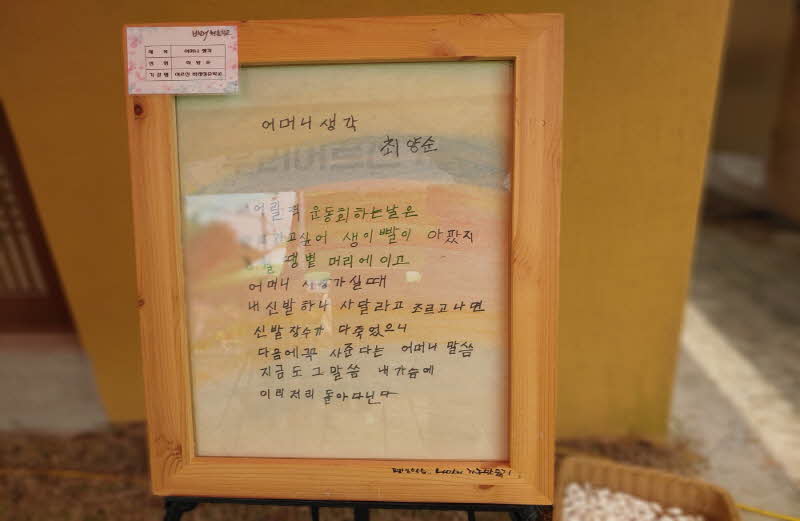 제 목 어머니 생각
성 명 최 양 순
기관명
어머니 생각
최양순
어릴 적 운동회하는날은
가고싶어 생이빨이 아팠지
땡볕 머리에 이고
어머니 시장가실때
내 신발하나 사달라고 조르고나면
신발장수가 다죽었으니
다음에꼭 사준다는 어머니 말씀
지금도 그말씀 내가슴에
이리저리 돌아다닌다